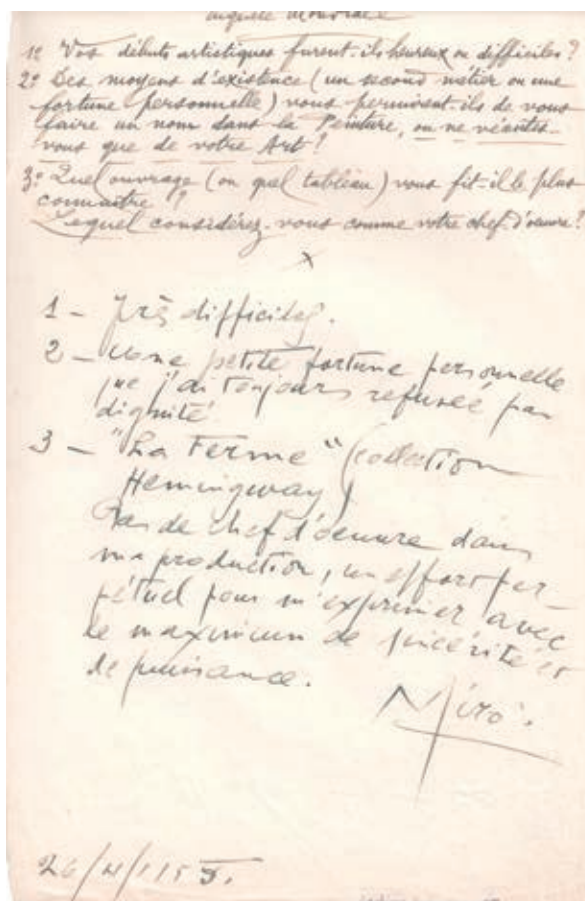 1º Vos débuts artistiques furent-ils heureux ou difficiles?
2º Des moyens d'existence (un second métier ou une
fortune personnelle) vous permirent-ils de vous
faire un nom dans la Peinture, ou ne vécûtes-
vous que de votre Art?
3º Quel ouvrage (ou quel tableau) vous fit-il le plus
connaître?
Lequel considérez-vous comme votre chef-d'oeuvre?
x
1 - Très difficiles.
2 - Une petite fortune personnelle
que j'ai toujours refusée par
dignité
3 - "La Ferme" (collection
Hemingway)
Pas de chef d'oeuvre dans
ma production, un effort per-
pétuel pour m'exprimer avec
le maximum de sincérité et
de puissance.
Miró.